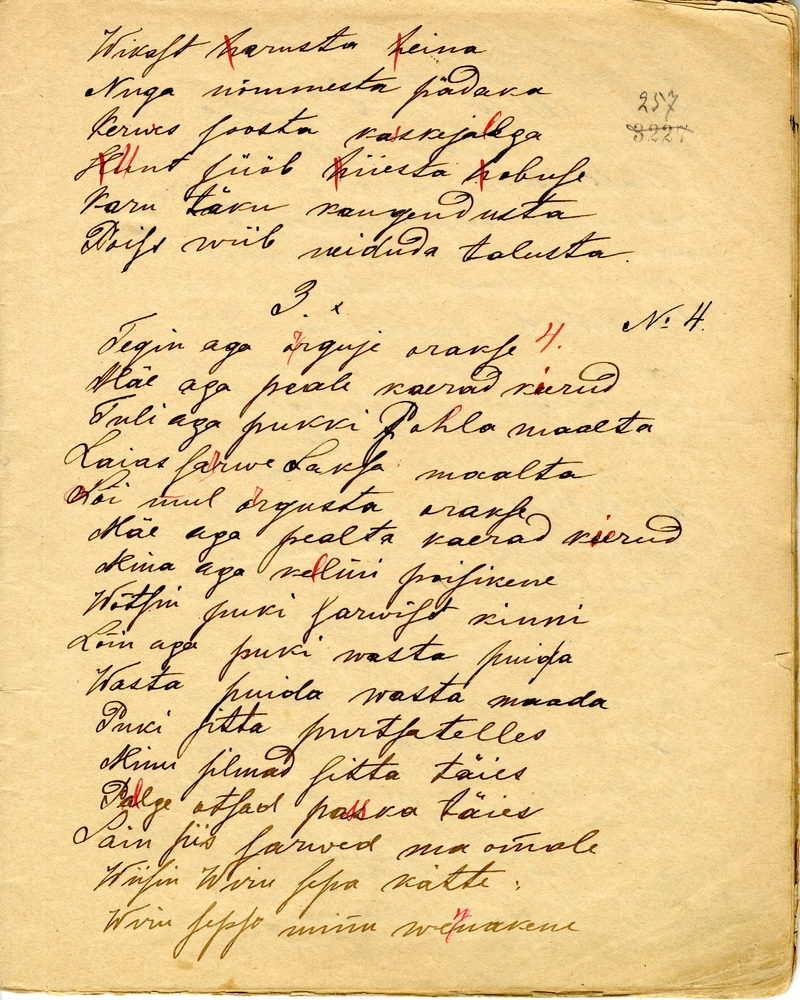 Wikast harusta heina
Nuga nõmmesta pädaka
Kerwes soosta kaskejalga
Hunt sööb hiiesta hobuse
Karu täku kaugendusta
Poiss wiib neiduda talusta.
257
322
3. x
No 4.
Tegin aga õrguje orakse 4.
Mäe aga peale kaerad kierud
Tuli aga pukki Pohla maalta
Laias sarwe Saksa maalta
Sõi mul õrgusta orakse
Mäe aga pealta kaerad kierud
Mina aga kelmi poisikene
Wõtsin puki sarwist kinni
Lõin aga puki wasta puida
Wasta puida wasta maada
Puki sitta purtsatelles
Minu silmad sitta täies
Palge otsad paska täies
Sain siis sarwed ma omale
Wiisin Wiru sepa kätte:
Wiru seppo minu wennakene